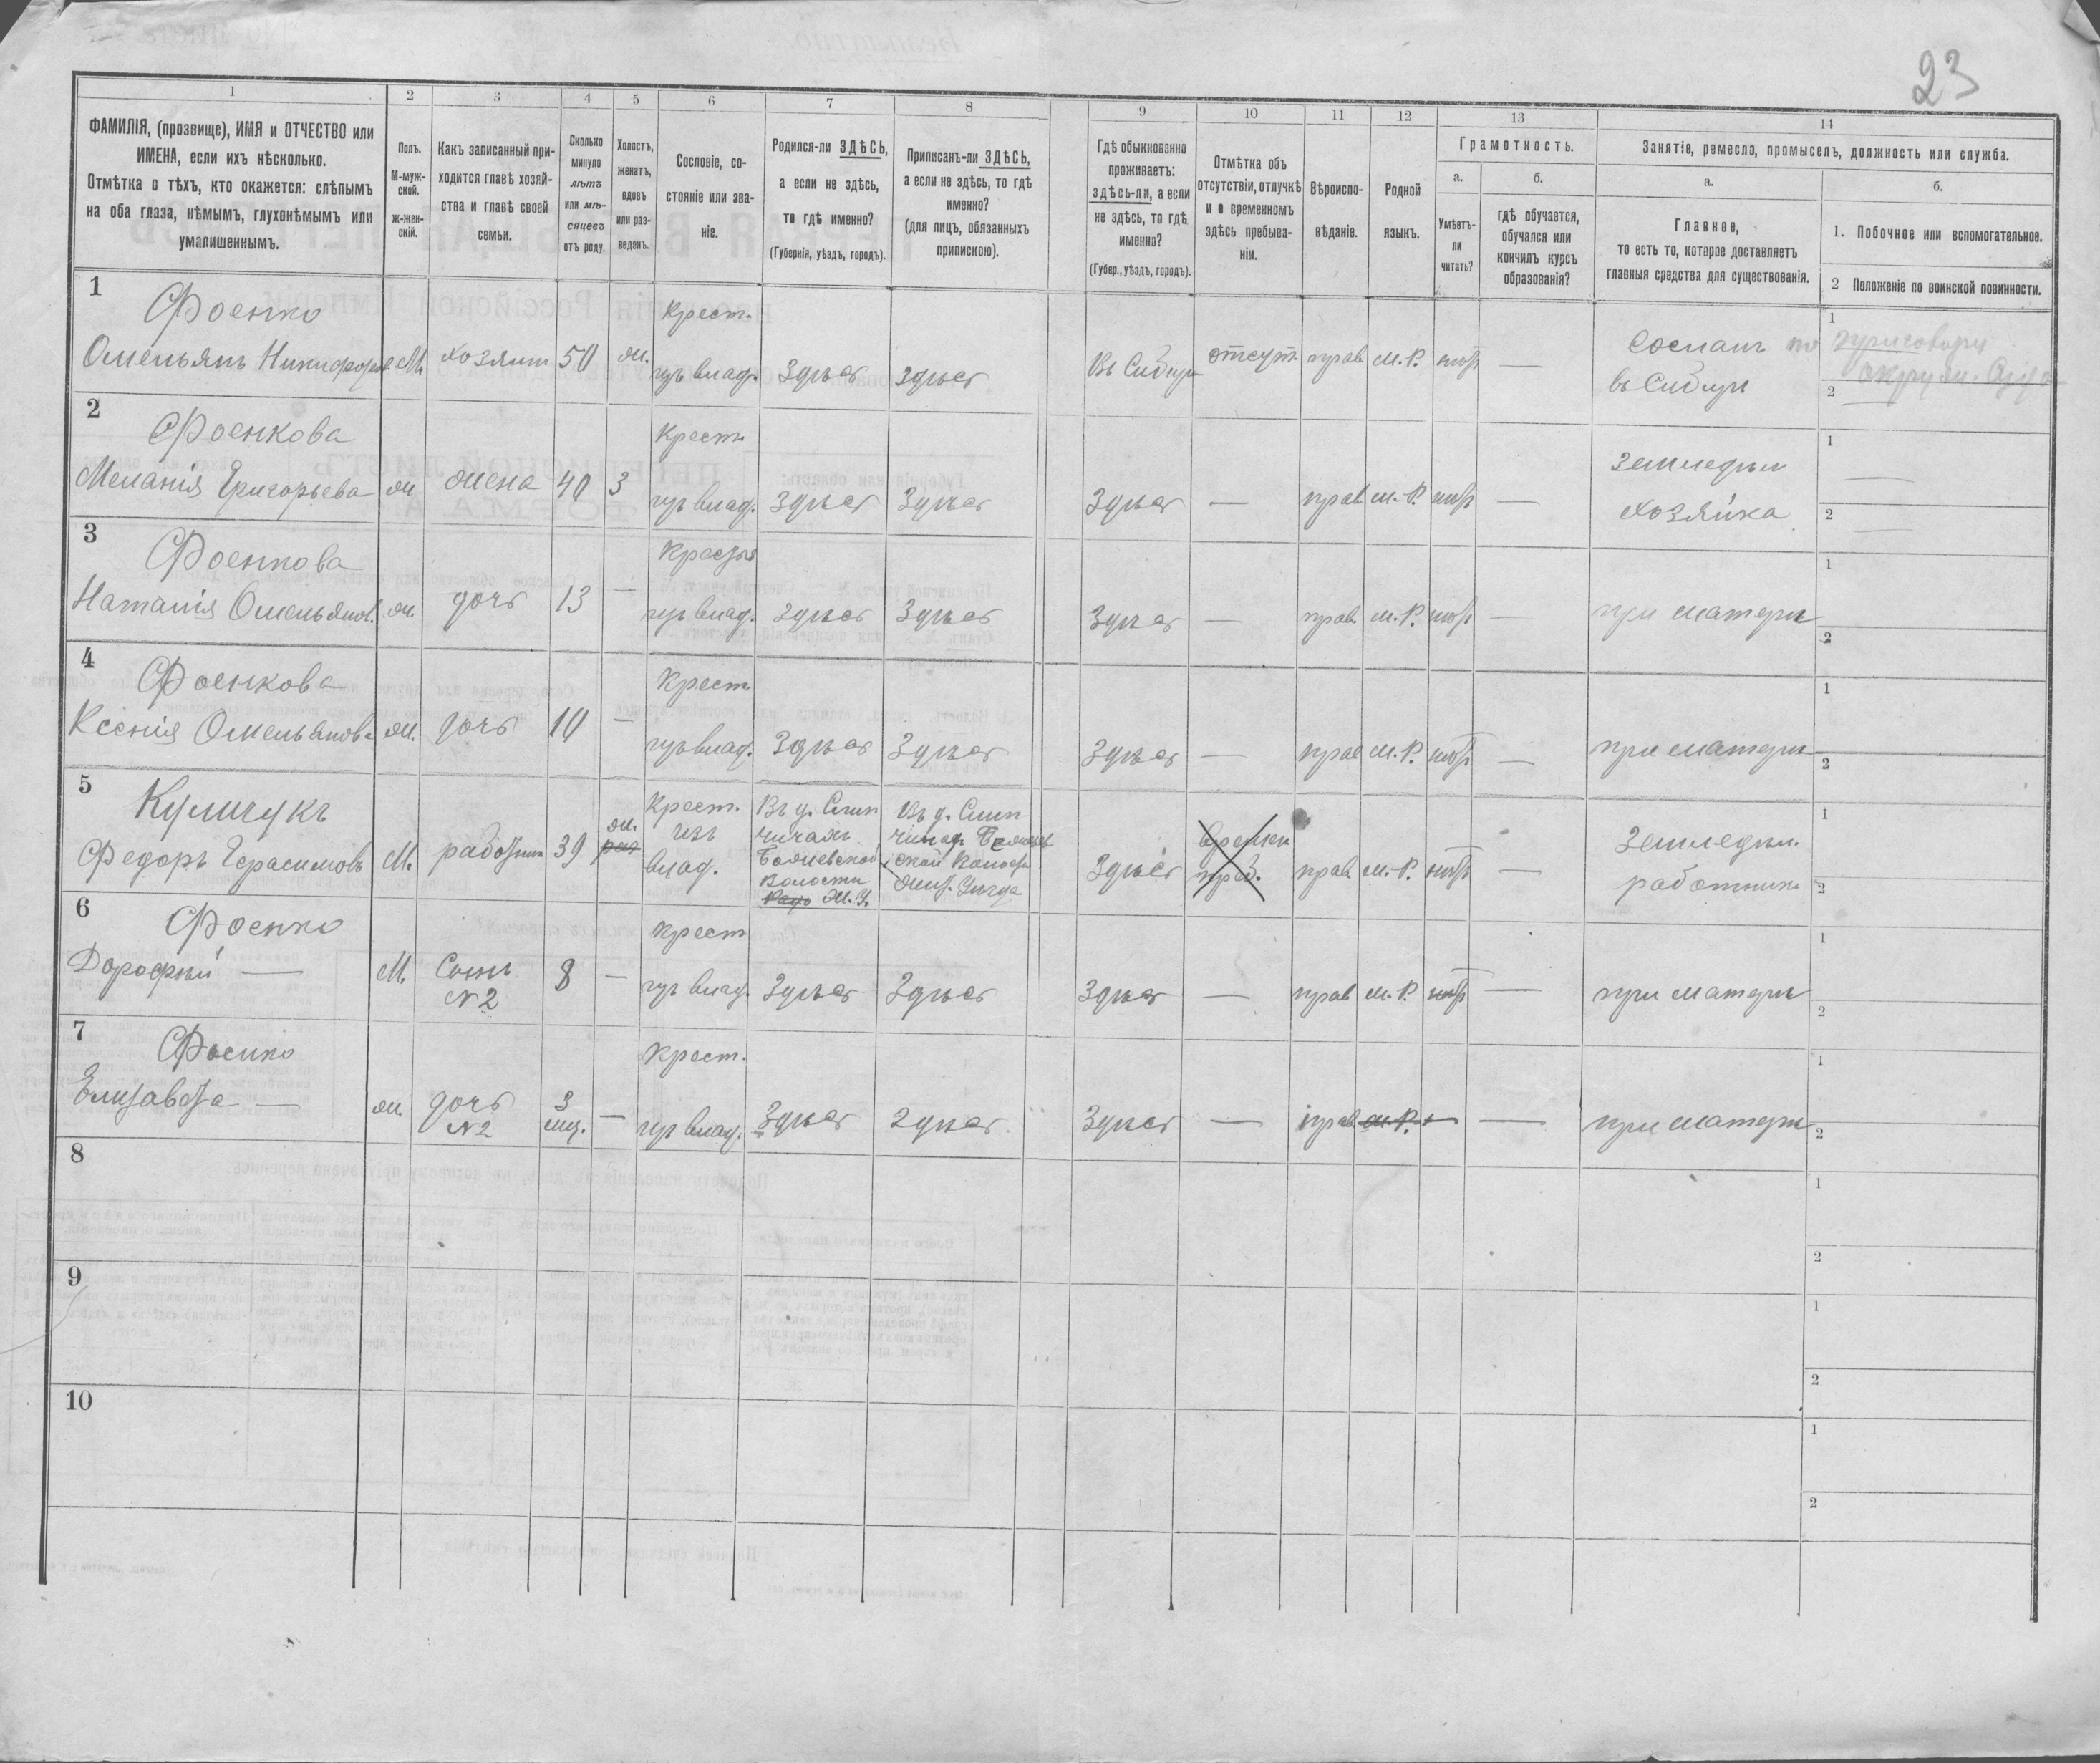 23
1 2 3 4 5 6 7 8 9 10 11 12 13 14
ФАМИЛІЯ, (прозвище), ИМЯ и ОТЧЕСТВО или
ИМЕНА, если ихъ нѣсколько.
Отмѣтка о тѣхъ, кто окажется: слѣпымъ
на оба глаза, нѣмымъ, глухонѣмымъ или
умалишеннымъ.
Полъ.
М-муж-
ской.
ж-жен-
скій.
Какъ записанный при-
ходится главѣ хозяй-
ства и главѣ своей
семьи.
Сколько
минуло
лѣтъ
или мѣ-
сяцевъ
отъ роду.
Холостъ,
женатъ,
вдовъ
или раз-
веденъ.
Сословіе, со-
стояніе или зва-
ніе.
Родился-ли ЗДѢСЬ,
а если не здѣсь,
то гдѣ именно?
(Губернія, уѣздъ, городъ).
Приписанъ-ли ЗДѢСЬ,
а если не здѣсь, то гдѣ
именно?
(для лицъ, обязанныхъ
припискою).
Гдѣ обыкновенно
проживаетъ:
здѣсь-ли, а если
не здѣсь, то гдѣ
именно?
(Губер., уѣздъ, городъ).
Отмѣтка объ
отсутствіи, отлучкѣ
и о временномъ
здѣсь пребыва-
ніи.
Вѣроиспо-
вѣданіе.
Родной
языкъ.
Грамотность.
а.
Умѣетъ-
ли
читать?
б.
гдѣ обучается,
обучался или
кончилъ курсъ
образованія?
Занятіе, ремесло, промыселъ, должность или служба.
а.
Главное,
то есть то, которое доставляетъ
главныя средства для существованія.
б.
1. Побочное или вспомогательное.
2 Положеніе по воинской повинности.
1
Фоенко
Омельянъ Никифоровъ М. хозяинъ 50 ж.
Крест.
изъ влад. Здѣсь здѣсь Въ Сибири отсут. прав. М.Р. нѣтъ —
Сосланъ по
въ Сибирь
1
2
2
Фоенкова
Меланія Григорьева ж жена 40 З
Крест.
изъ влад. здѣсь Здѣсь Здѣсь — прав. М.Р. нѣтъ —
Земледѣл
хозяйка
1 —
2 —
3
Фоенкова
Наталія Омельянов. ж. дочь 13 —
Крестья
изъ влад. здѣсь Здѣсь Здѣсь — прав. М.Р. нѣтъ — при матери
1
2
4
Фоенкова
Ксенія Омельянова ж. дочь 10 —
Крест
изъ влад. Здѣсь Здѣсь Здѣсь — прав М.Р. нѣтъ — при матери
1
2
5
Куличукъ
Федоръ Герасимовъ М. работник 39 ж.
Крест.
изъ
влад.
Въ д. Слип
чичахъ
Волости
Ж.У.
Въ д. Слип
Здѣсь
времен
преб.
прав. М.Р. нѣтъ —
Земледѣл.
работникъ
1
2
6
Фоенко
Дорофѣй — М. Сынъ
№2
8 —
Крест
изъ влад. Здѣсь Здѣсь Здѣсь — прав М.Р. нѣтъ — при матери
1
2
7
Фоенко
Елизавета — ж. дочь
№2
3
мѣс. —
Крест.
изъ влад. Здѣсь здѣсь Здѣсь — прав М.Р. — — при матери
1
2
8
1
2
9
1
2
10
1
2